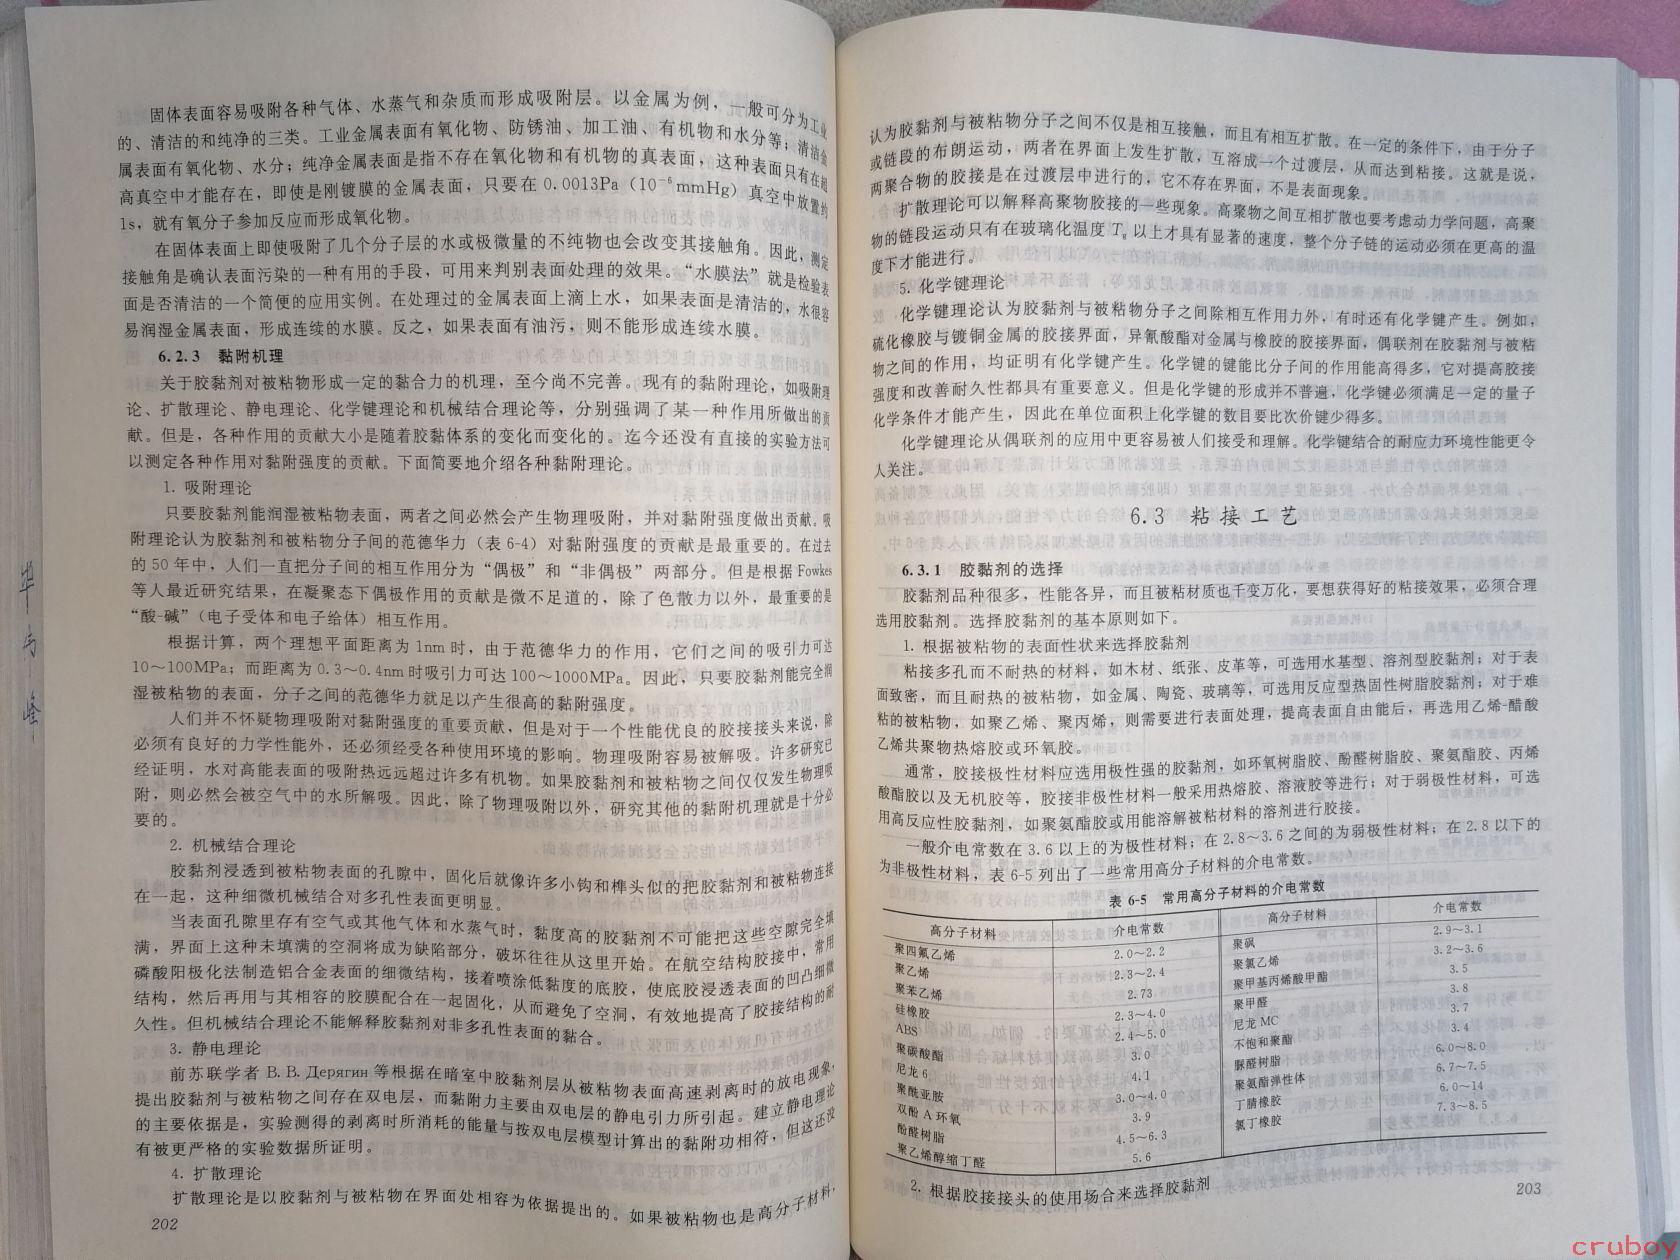 固体表面容易吸附各种气体、水蒸气和杂质而形成吸附层。以金属为例，一般可分为工业
的、清洁的和纯净的三类。工业金属表面有氧化物、防锈油、加工油、有机物和水分等；清洁金
属表面有氧化物、水分；纯净金属表面是指不存在氧化物和有机物的真表面，这种表面只有在超
高真空中才能存在，即使是刚镀膜的金属表面，只要在 0.0013Pa（10⁻⁶mmHg）真空中放置约
1s，就有氧分子参加反应而形成氧化物。
在固体表面上即使吸附了几个分子层的水或极微量的不纯物也会改变其接触角。因此，测定
接触角是确认表面污染的一种有用的手段，可用来判别表面处理的效果。“水膜法”就是检验表
面是否清洁的一个简便的应用实例。在处理过的金属表面上滴上水，如果表面是清洁的，水很容
易润湿金属表面，形成连续的水膜。反之，如果表面有油污，则不能形成连续水膜。
6.2.3 黏附机理
关于胶黏剂对被粘物形成一定的黏合力的机理，至今尚不完善。现有的黏附理论，如吸附理
论、扩散理论、静电理论、化学键理论和机械结合理论等，分别强调了某一种作用所做出的贡
献。但是，各种作用的贡献大小是随着胶黏体系的变化而变化的。迄今还没有直接的实验方法可
以测定各种作用对黏附强度的贡献。下面简要地介绍各种黏附理论。
1. 吸附理论
只要胶黏剂能润湿被粘物表面，两者之间必然会产生物理吸附，并对黏附强度做出贡献。吸
附理论认为胶黏剂和被粘物分子间的范德华力（表 6-4）对黏附强度的贡献是最重要的。在过去
的 50 年中，人们一直把分子间的相互作用分为“偶极”和“非偶极”两部分。但是根据 Fowkes
等人最近研究结果，在凝聚态下偶极作用的贡献是微不足道的，除了色散力以外，最重要的是
“酸-碱”（电子受体和电子给体）相互作用。
根据计算，两个理想平面距离为 1nm 时，由于范德华力的作用，它们之间的吸引力可达
10～100MPa；而距离为 0.3～0.4nm 时吸引力可达 100～1000MPa。因此，只要胶黏剂能完全润
湿被粘物的表面，分子之间的范德华力就足以产生很高的黏附强度。
人们并不怀疑物理吸附对黏附强度的重要贡献，但是对于一个性能优良的胶接接头来说，除
必须有良好的力学性能外，还必须经受各种使用环境的影响。物理吸附容易被解吸。许多研究已
经证明，水对高能表面的吸附热远远超过许多有机物。如果胶黏剂和被粘物之间仅仅发生物理吸
附，则必然会被空气中的水所解吸。因此，除了物理吸附以外，研究其他的黏附机理就是十分必
要的。
2. 机械结合理论
胶黏剂浸透到被粘物表面的孔隙中，固化后就像许多小钩和榫头似的把胶黏剂和被粘物连接
在一起，这种细微机械结合对多孔性表面更明显。
当表面孔隙里存有空气或其他气体和水蒸气时，黏度高的胶黏剂不可能把这些空隙完全填
满，界面上这种未填满的空洞将成为缺陷部分，破坏往往从这里开始。在航空结构胶接中，常用
磷酸阳极化法制造铝合金表面的细微结构，接着喷涂低黏度的底胶，使底胶浸透表面的凹凸细微
结构，然后再用与其相容的胶膜配合在一起固化，从而避免了空洞，有效地提高了胶接结构的耐
久性。但机械结合理论不能解释胶黏剂对非多孔性表面的黏合。
3. 静电理论
前苏联学者 B. B. Дерягин 等根据在暗室中胶黏剂层从被粘物表面高速剥离时的放电现象，
提出胶黏剂与被粘物之间存在双电层，而黏附力主要由双电层的静电引力所引起。建立静电理论
的主要依据是，实验测得的剥离时所消耗的能量与按双电层模型计算出的黏附功相符，但这还没
有被更严格的实验数据所证明。
4. 扩散理论
扩散理论是以胶黏剂与被粘物在界面处相容为依据提出的。如果被粘物也是高分子材料，
202
认为胶黏剂与被粘物分子之间不仅是相互接触，而且有相互扩散。在一定的条件下，由于分子
或链段的布朗运动，两者在界面上发生扩散，互溶成一个过渡层，从而达到粘接。这就是说，
两聚合物的胶接是在过渡层中进行的，它不存在界面，不是表面现象。
扩散理论可以解释高聚物胶接的一些现象。高聚物之间互相扩散也要考虑动力学问题，高聚
物的链段运动只有在玻璃化温度 Tg 以上才具有显著的速度，整个分子链的运动必须在更高的温
度下才能进行。
5. 化学键理论
化学键理论认为胶黏剂与被粘物分子之间除相互作用力外，有时还有化学键产生。例如，
硫化橡胶与镀铜金属的胶接界面，异氰酸酯对金属与橡胶的胶接界面，偶联剂在胶黏剂与被粘
物之间的作用，均证明有化学键产生。化学键的键能比分子间的作用能高得多，它对提高胶接
强度和改善耐久性都具有重要意义。但是化学键的形成并不普遍，化学键必须满足一定的量子
化学条件才能产生，因此在单位面积上化学键的数目要比次价键少得多。
化学键理论从偶联剂的应用中更容易被人们接受和理解。化学键结合的耐应力环境性能更令
人关注。
6.3 粘接工艺
6.3.1 胶黏剂的选择
胶黏剂品种很多，性能各异，而且被粘材质也千变万化，要想获得好的粘接效果，必须合理
选用胶黏剂。选择胶黏剂的基本原则如下。
1. 根据被粘物的表面性状来选择胶黏剂
粘接多孔而不耐热的材料，如木材、纸张、皮革等，可选用水基型、溶剂型胶黏剂；对于表
面致密，而且耐热的被粘物，如金属、陶瓷、玻璃等，可选用反应型热固性树脂胶黏剂；对于难
粘的被粘物，如聚乙烯、聚丙烯，则需要进行表面处理，提高表面自由能后，再选用乙烯-醋酸
乙烯共聚物热熔胶或环氧胶。
通常，胶接极性材料应选用极性强的胶黏剂，如环氧树脂胶、酚醛树脂胶、聚氨酯胶、丙烯
酸酯胶以及无机胶等，胶接非极性材料一般采用热熔胶、溶液胶等进行；对于弱极性材料，可选
用高反应性胶黏剂，如聚氨酯胶或用能溶解被粘材料的溶剂进行胶接。
一般介电常数在 3.6 以上的为极性材料；在 2.8～3.6 之间的为弱极性材料；在 2.8 以下的
为非极性材料，表 6-5 列出了一些常用高分子材料的介电常数。
表 6-5 常用高分子材料的介电常数
高分子材料 介电常数 高分子材料 介电常数
聚四氟乙烯 2.0～2.2 聚砜 2.9～3.1
聚乙烯 2.3～2.4 聚氯乙烯 3.2～3.6
聚苯乙烯 2.73 聚甲基丙烯酸甲酯 3.5
硅橡胶 2.3～4.0 聚甲醛 3.8
ABS 2.4～5.0 尼龙 MC 3.7
聚碳酸酯 3.0 不饱和聚酯 3.4
尼龙 6 4.1 脲醛树脂 6.0～8.0
聚酰亚胺 3.0～4.0 聚氨酯弹性体 6.7～7.5
双酚 A 环氧 3.9 丁腈橡胶 6.0～14
酚醛树脂 4.5～6.3 氯丁橡胶 7.3～8.5
聚乙烯醇缩丁醛 5.6
2. 根据胶接接头的使用场合来选择胶黏剂
203
cruboy